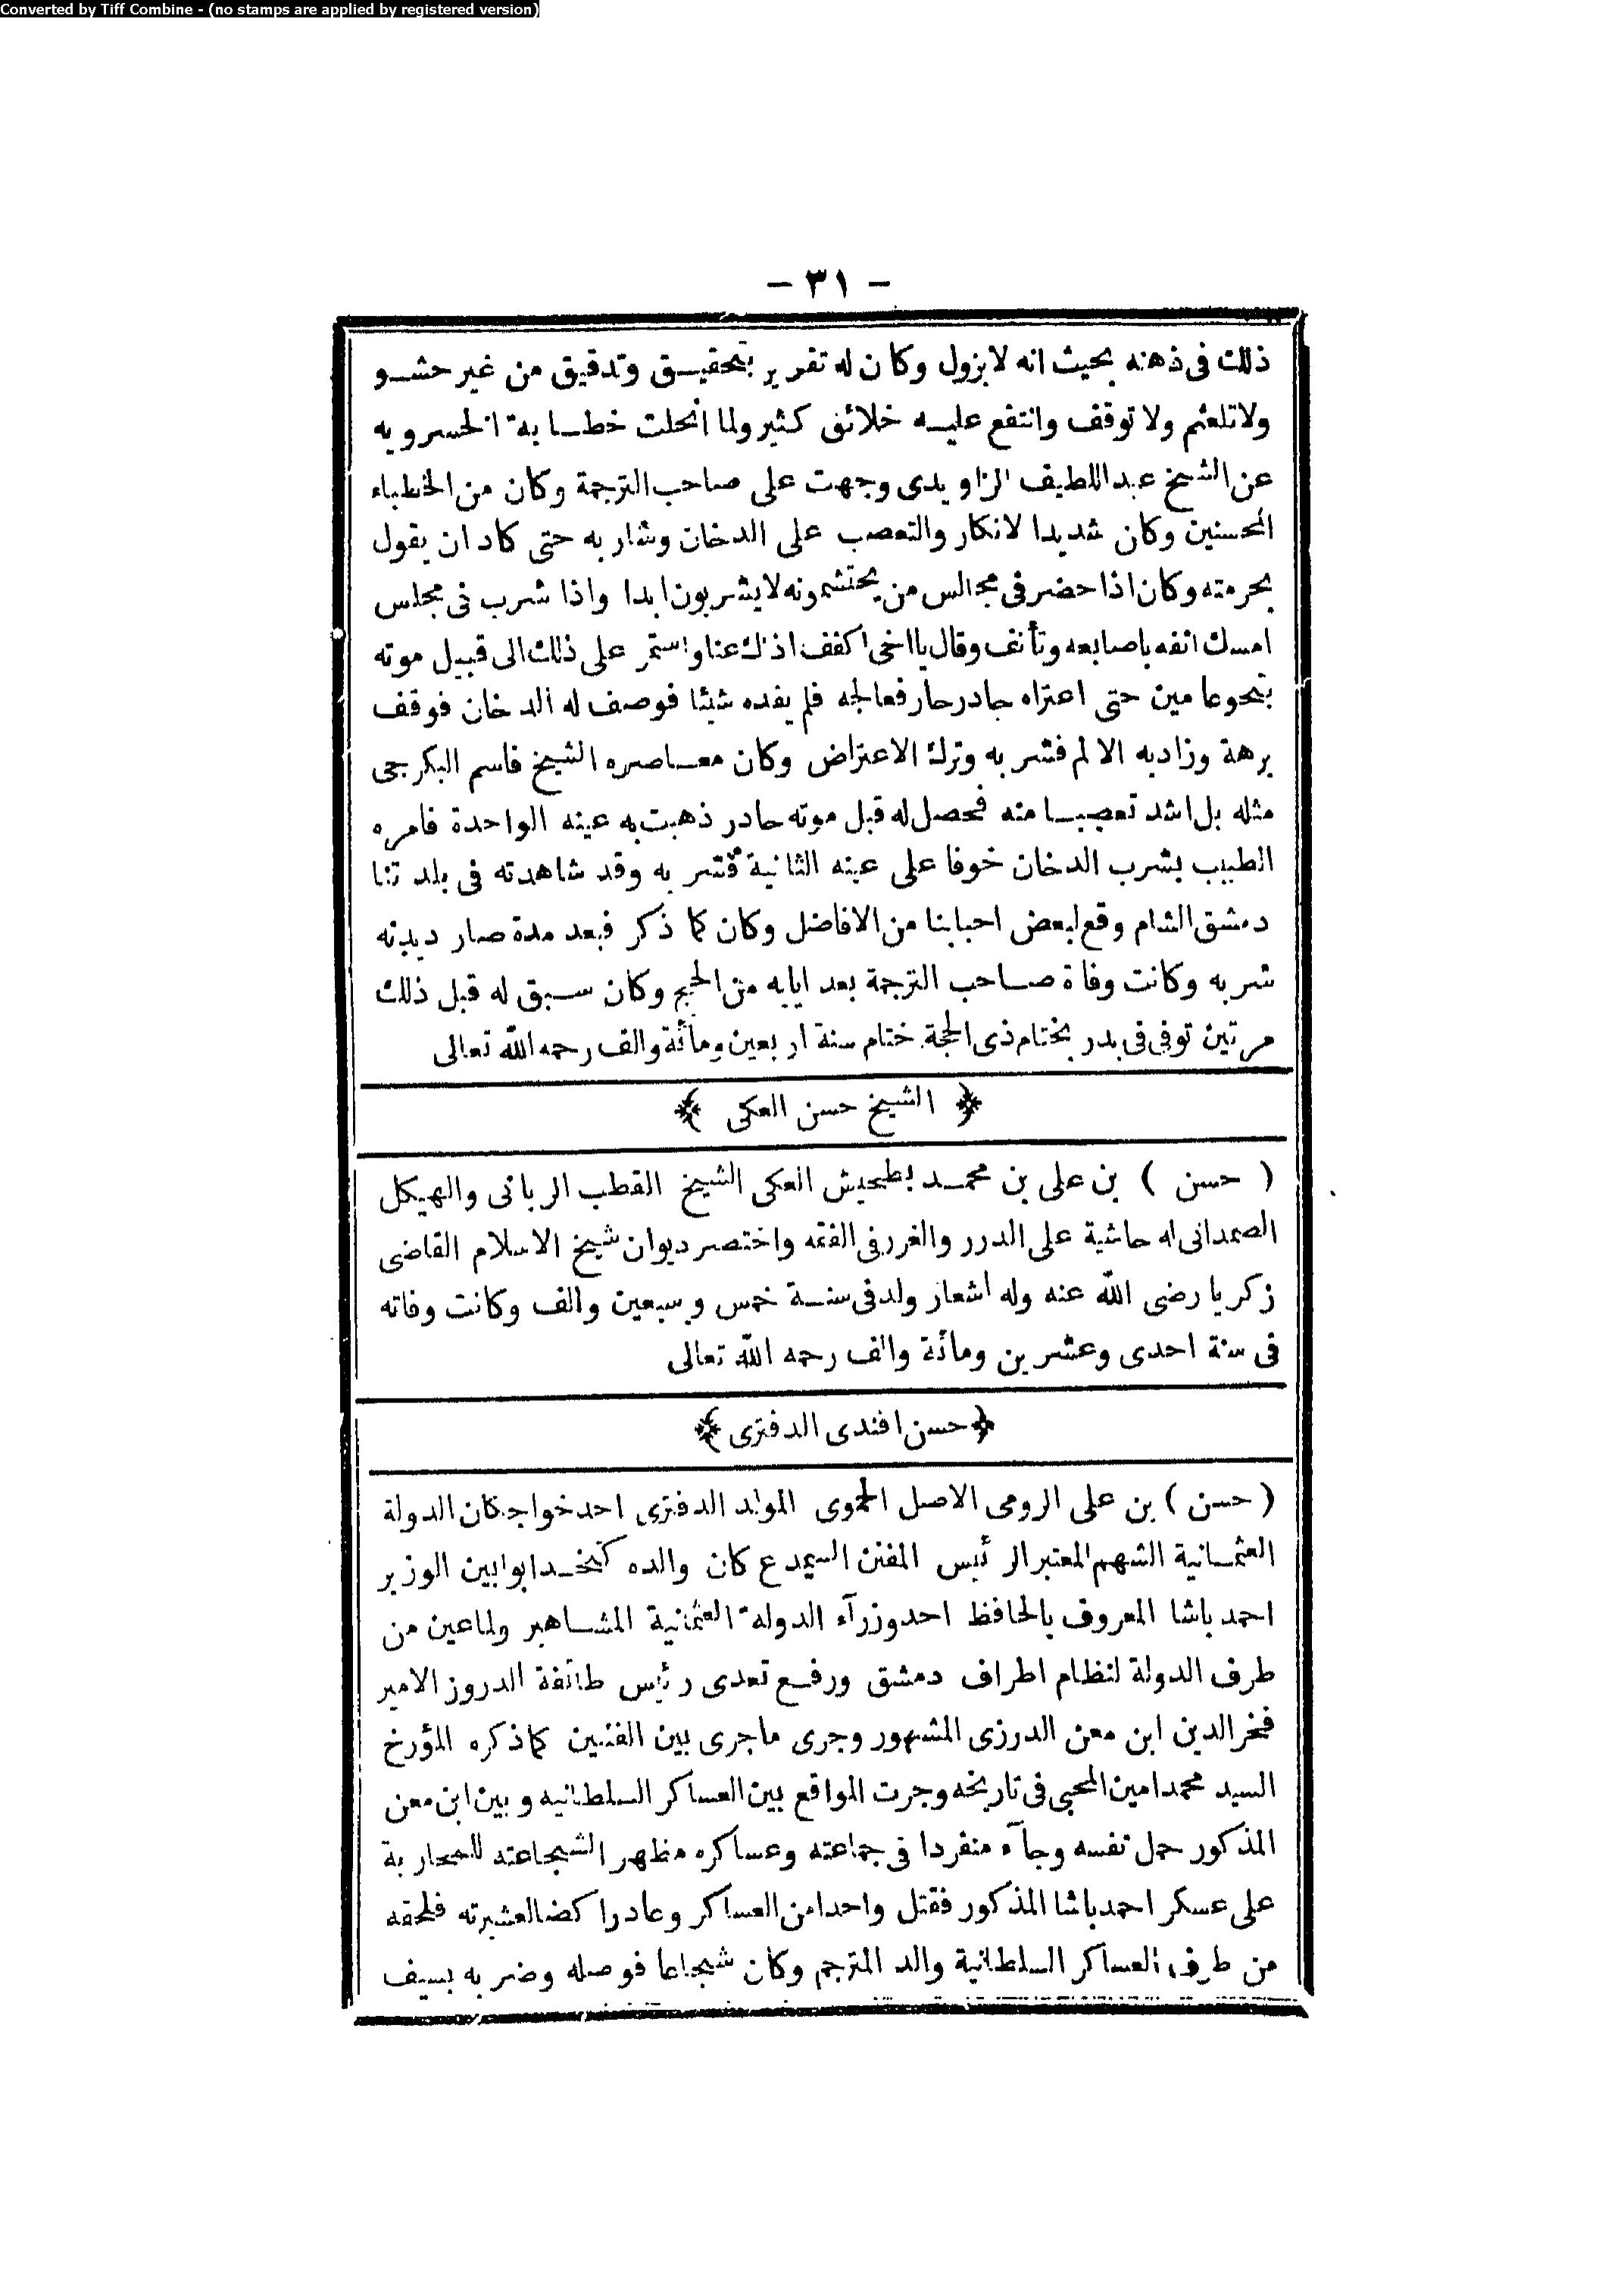 Converted by Tiff Combine - (no stamps are applied by registered version)
- ٣١ -
ذلك فى ذهنه بحيث انه لا يزول وكان له تقرير بتحقيق وتدقيق من غير حشو
ولا تلعثم ولا توقف وانتفع عليه خلائق كثير ولما انحلت خطابة الخسرويه
عن الشيخ عبد اللطيف الزاويدى وجهت على صاحب الترجمة وكان من الخطباء
المحسنين وكان شديد الانكار والتعصب على الدخان وشاربه حتى كاد ان يقول
بحرمته وكان اذا حضر فى مجالس من يحتشمونه لا يشربون ابدا واذا شرب فى مجلس
امسك انفه باصابعه وتأنف وقال يا اخى اكفف اذاك عنا واستمر على ذلك الى قبيل موته
بنحو عامين حتى اعتراه حادر حار فعالجه فلم يفده شيئا فوصف له الدخان فوقف
برهة وزاد به الالم فشربه وترك الاعتراض وكان معاصره الشيخ قاسم البكرجى
مثله بل اشد تعصبا منه فحصل له قبل موته حادر ذهبت به عينه الواحدة فامره
الطبيب بشرب الدخان خوفا على عينه الثانية فشربه وقد شاهدته فى بلدتنا
دمشق الشام وقع لبعض احبابنا من الافاضل وكان كما ذكر فبعد مدة صار ديدنه
شربه وكانت وفاة صاحب الترجمة بعد ايابه من الحج وكان سبق له قبل ذلك
مرتين توفى فى بدر بختام ذى الحجة ختام سنة اربعين ومائة والف رحمه الله تعالى
﴿ الشيخ حسن العكى ﴾
( حسن ) بن على بن محمد بطحيش العكى الشيخ القطب الربانى والهيكل
الصمدانى له حاشية على الدرر والغرر فى الفقه واختصر ديوان شيخ الاسلام القاضى
زكريا رضى الله عنه وله اشعار ولد فى سنة خمس وسبعين والف وكانت وفاته
فى سنة احدى وعشرين ومائة والف رحمه الله تعالى
﴿ حسن افندى الدفترى ﴾
( حسن ) بن على الرومى الاصل الحموى المولد الدفترى احد خواجكان الدولة
العثمانية الشهم المعتبر الرئيس المفنن السميدع كان والده كتخدا بوابين الوزير
احمد باشا المعروف بالحافظ احد وزرآء الدولة العثمانية المشاهير ولما عين من
طرف الدولة لنظام اطراف دمشق ورفع تعدى رئيس طائفة الدروز الامير
فخر الدين ابن معن الدرزى المشهور وجرى ما جرى بين الفئتين كما ذكره المؤرخ
السيد محمد امين المحبى فى تاريخه وجرت المواقع بين العساكر السلطانيه وبين ابن معن
المذكور حمل نفسه وجآء منفردا فى جماعته وعساكره مظهرا لشجاعته للمحاربة
على عسكر احمد باشا المذكور فقتل واحدا من العساكر وعاد راكضا لعشيرته فلحقه
من طرف العساكر السلطانية والد المترجم وكان شجاعا فوصله وضربه بسيف